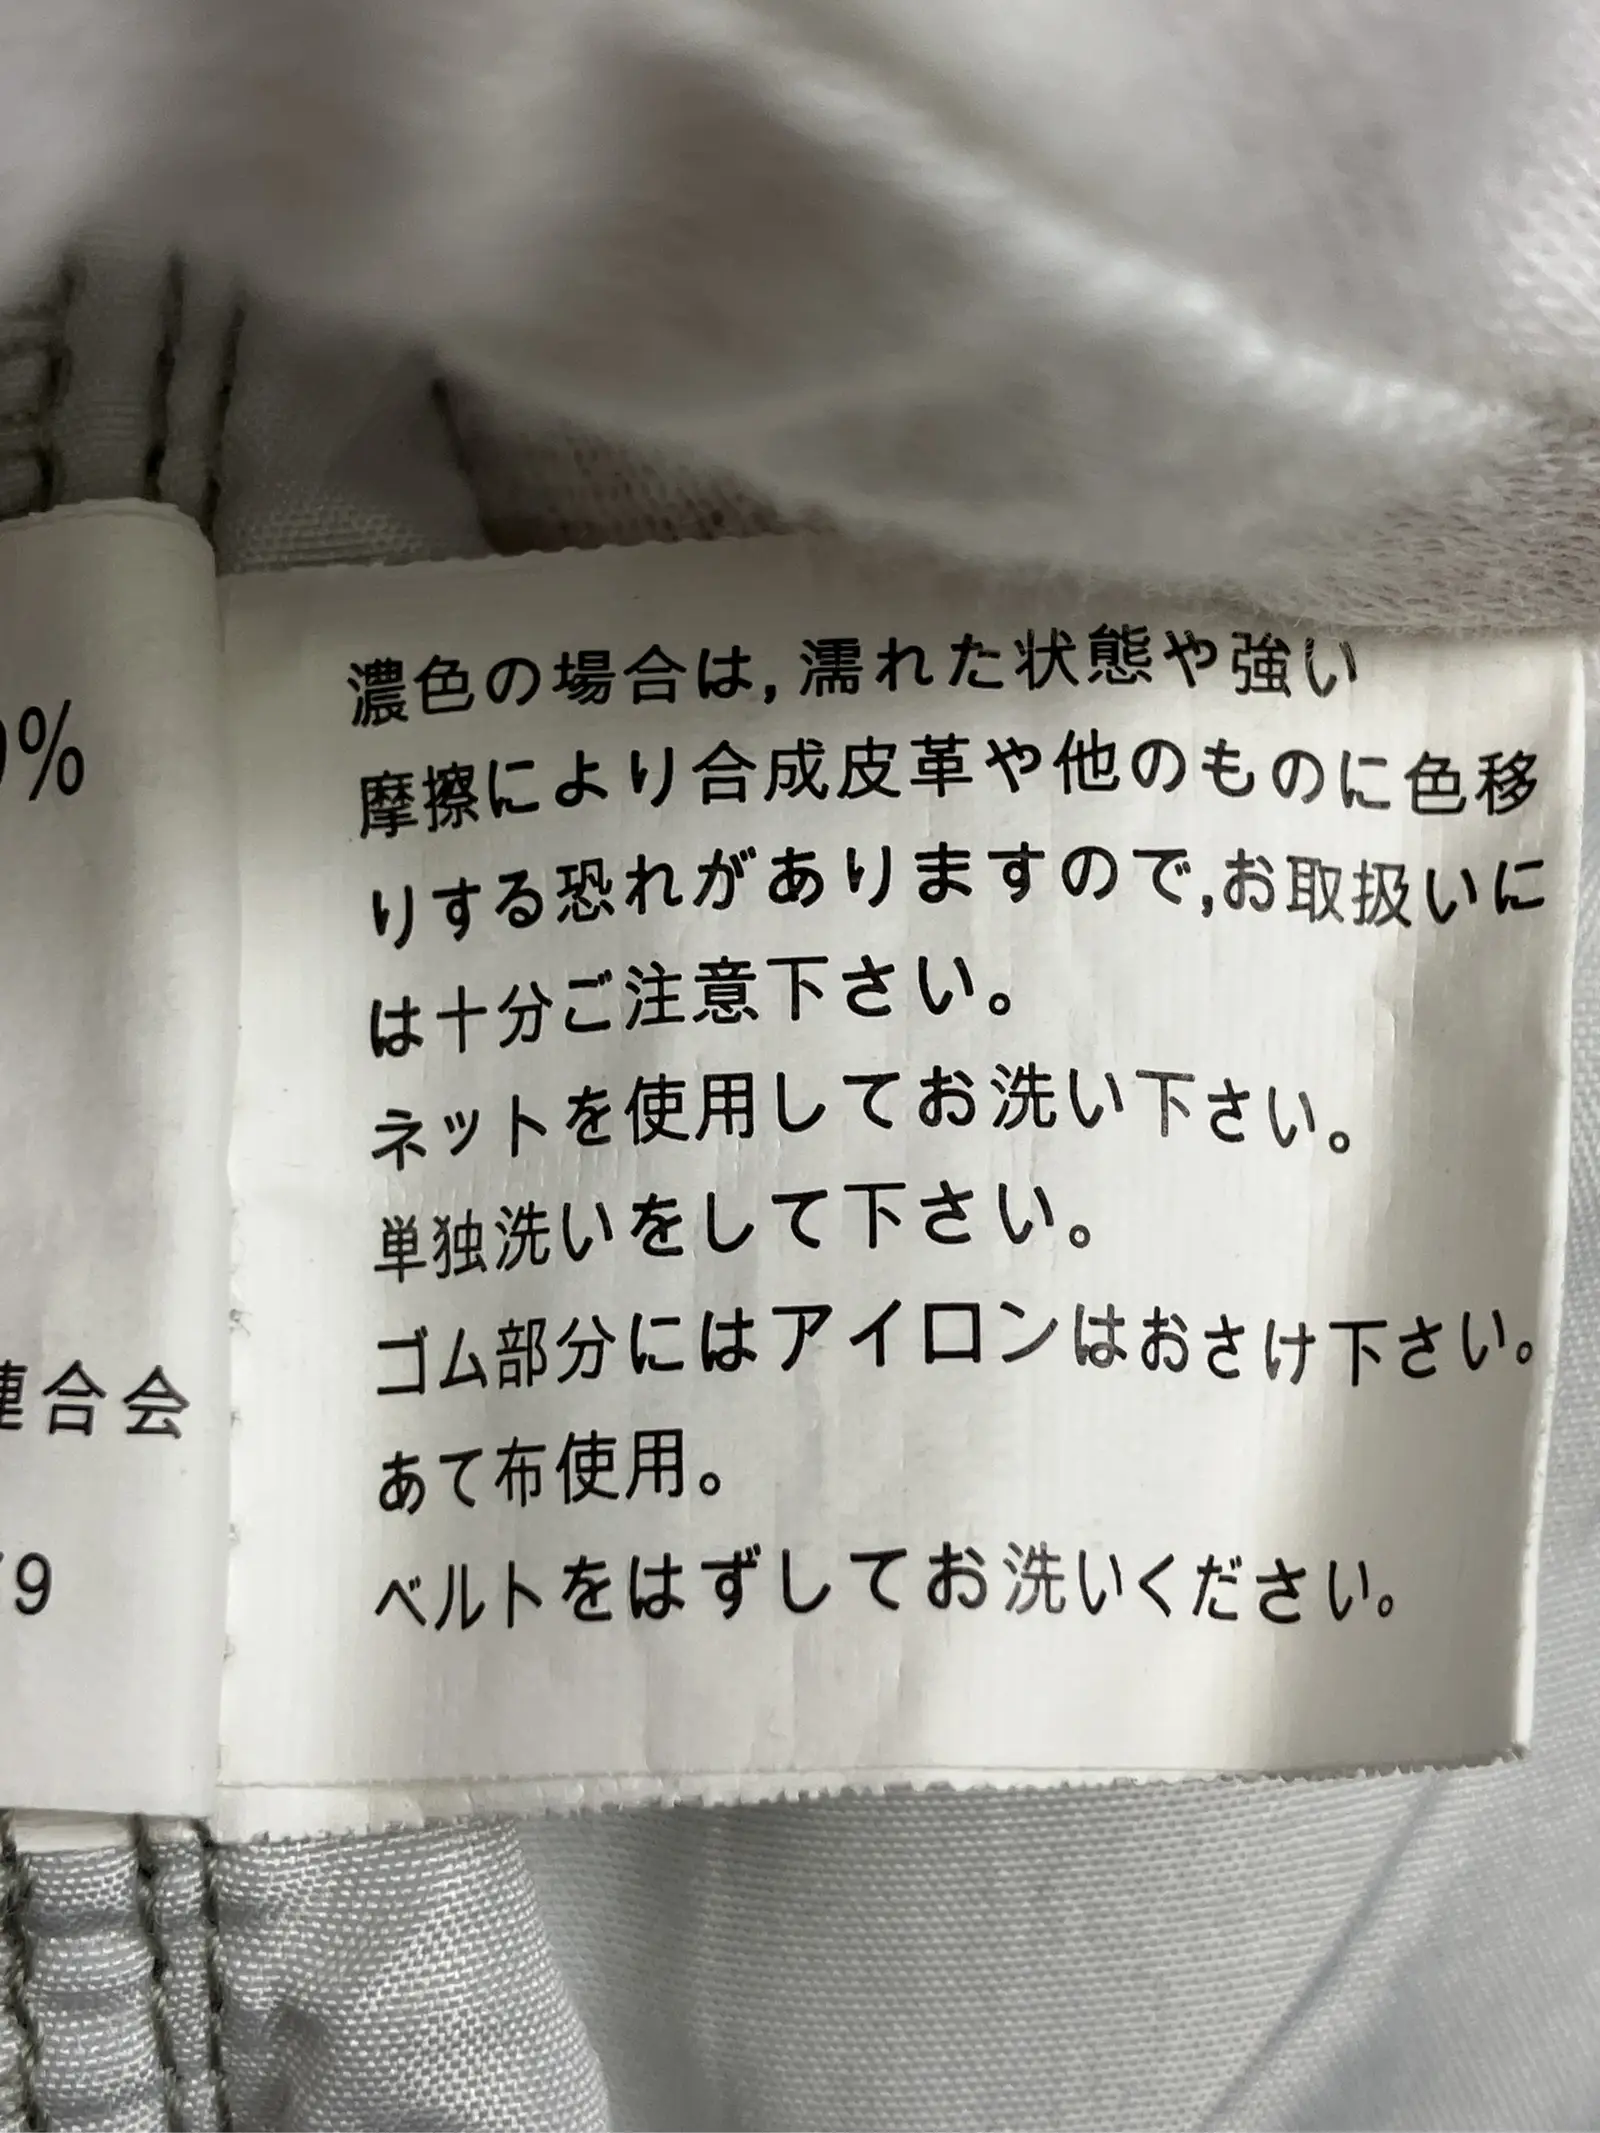 0%
連合会
79
濃色の場合は,濡れた状態や強い
摩擦により合成皮革や他のものに色移
りする恐れがありますので,お取扱いに
は十分ご注意下さい。
ネットを使用してお洗い下さい。
単独洗いをして下さい。
ゴム部分にはアイロンはおさけ下さい。
あて布使用。
ベルトをはずしてお洗いください。